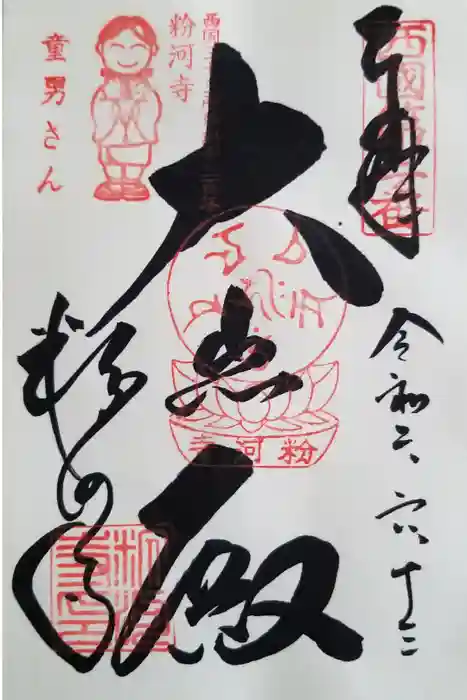 奉拝
西國第三番
令和六、六、十三
大悲殿
粉河寺
粉河寺
粉河寺
童男さん